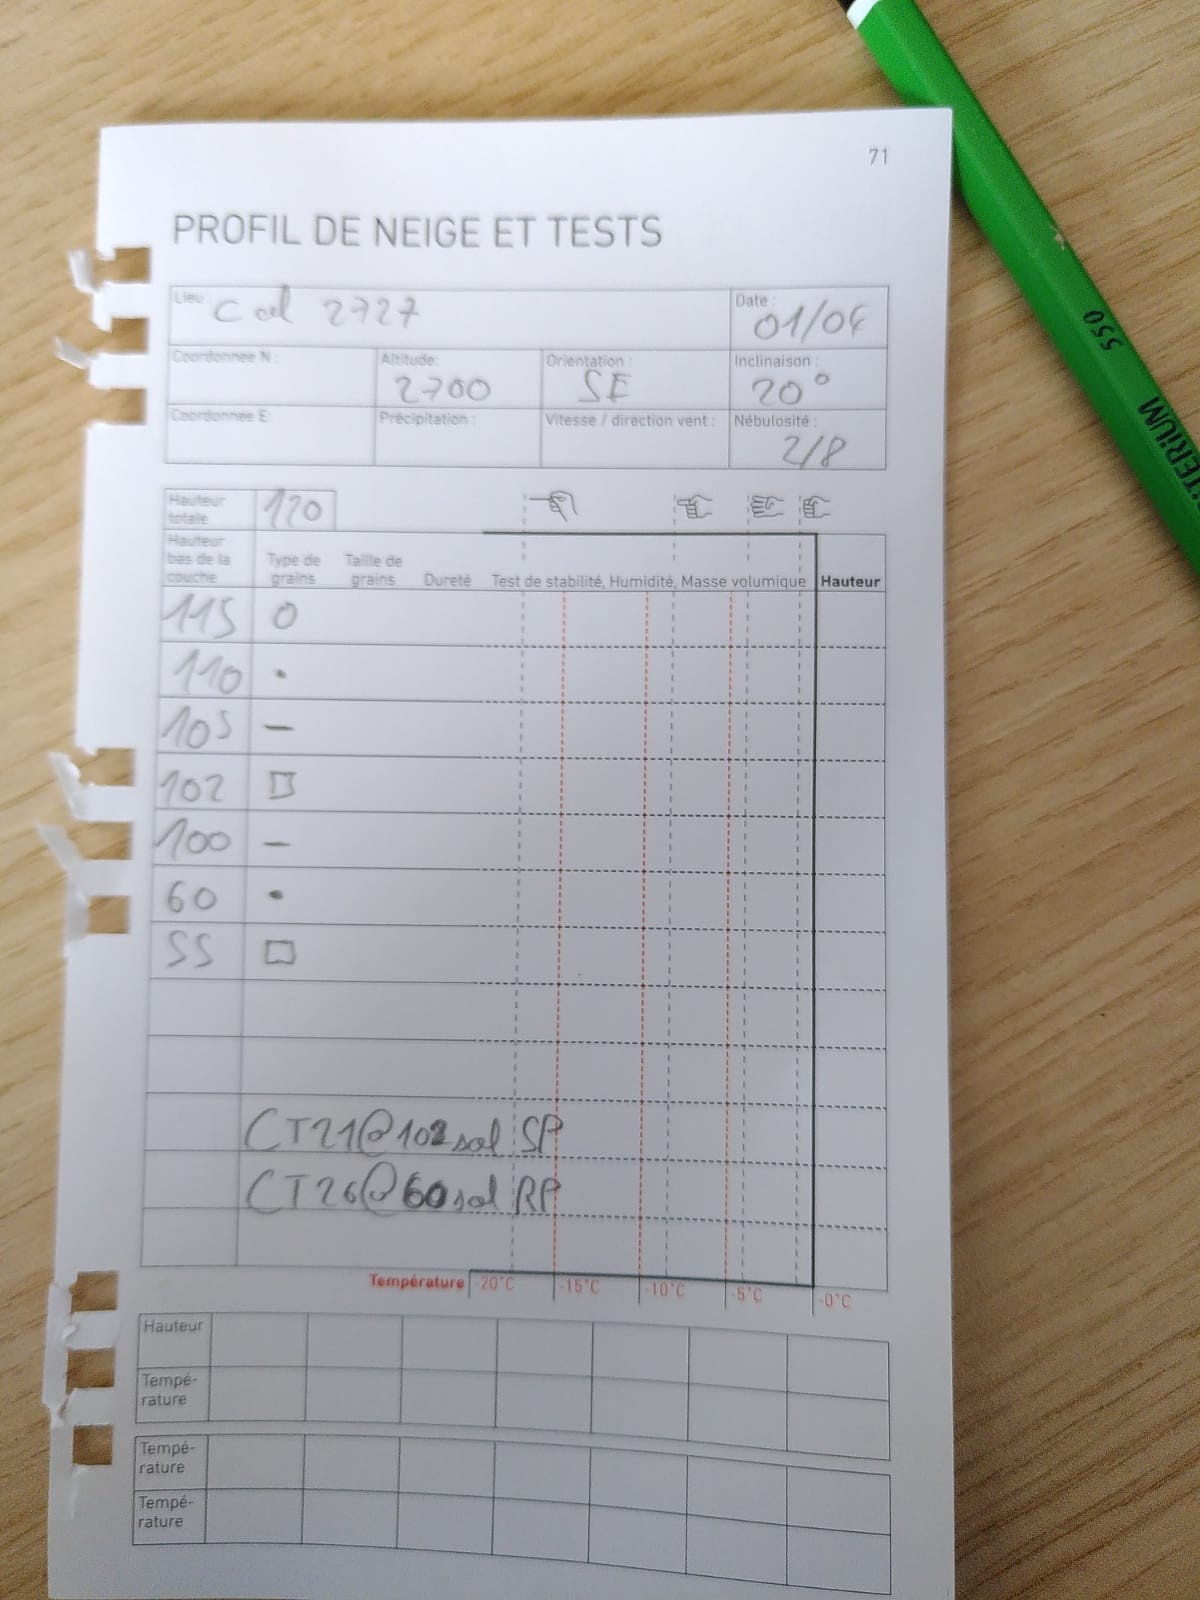 71
PROFIL DE NEIGE ET TESTS
Lieu : Col 2727
Date : 01/04
Coordonnee N :
Altitude: 2700
Orientation : SE
Inclinaison : 20°
Coordonnee E:
Précipitation :
Vitesse / direction vent :
Nébulosité : 2/8
Hauteur totale 120
Hauteur bas de la couche
Type de grains
Taille de grains
Dureté
Test de stabilité, Humidité, Masse volumique
Hauteur
115 O
110 •
105 —
102
100 —
60 •
55 □
CT21@102sol SP
CT26@60sol RP
Température -20°C -15°C -10°C -5°C -0°C
Hauteur
Tempé-
rature
Tempé-
rature
Tempé-
rature
550